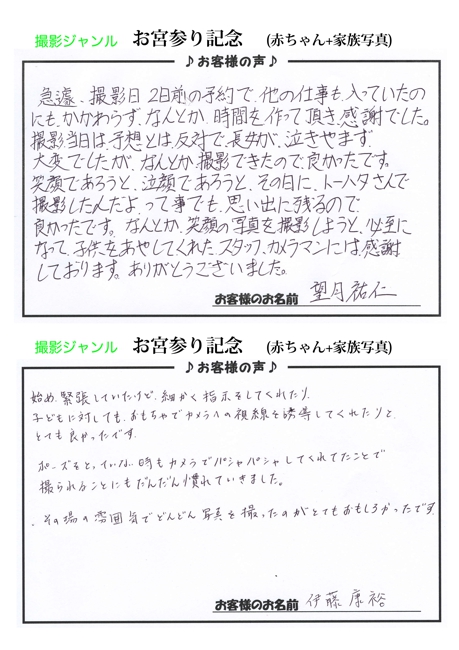 撮影ジャンル お宮参り記念 (赤ちゃん+家族写真)
♪お客様の声♪
急遽、撮影日2日前の予約で、他の仕事も入っていたの
にもかかわらず、なんとか、時間を作って頂き感謝でした。
撮影当日は、予想とは反対で、長女が、泣きやまず、
大変でしたが、なんとか撮影できたので、良かったです。
笑顔であろうと、泣顔であろうと、その日に、トーハタさんで
撮影したんだよって事でも、思い出に残るので
良かったです。なんとか、笑顔の写真を撮影しようと、必至に
なって、子供をあやしてくれた、スタッフ、カメラマンには、感謝
しております。ありがとうございました。
お客様のお名前 望月祐仁
撮影ジャンル お宮参り記念 (赤ちゃん+家族写真)
♪お客様の声♪
始め、緊張していたけど、細かく指示をしてくれたり、
子どもに対しても、おもちゃでカメラへの視線を誘導してくれたりと、
とても良かったです。
ポーズをとっていない時もカメラでパシャパシャしてくれてたことで
撮られることにもだんだん慣れていきました。
、その場の雰囲気でどんどん写真を撮ったのがとてもおもしろかったです
お客様のお名前 伊藤康裕